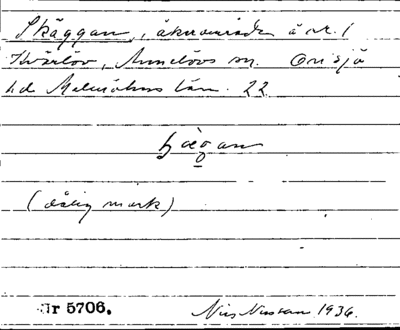 Skäggan, åkerområde å nr. 1
Kvärlöv, Annelövs sn. Onsjö
hd Malmöhus län. 22
(dålig mark)
Nr 5706. Nils Nilsson 1936.